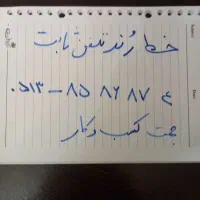 خط رُند تلفن ثابت
۰۵۱۳ - ۸۵ ۸۶ ۸۷ ۴
جهت کسب و کار